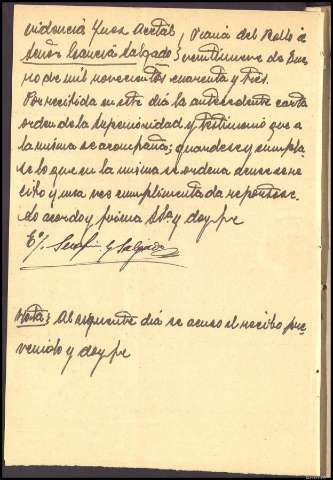 videncia Juez Acctal; Viana del Bollo á
Señor García Salgado } veintinueve de Ene
ro de mil novecientos cuarenta y tres.
Por recibida en este día la antecedente carta
orden de la Superioridad y testimonio que a
la misma se acompaña; guardese y cumpla
se lo que en la misma se ordena, acusese re
cibo y una vez cumplimentada reportese.
Lo acordó y firma Sª y doy fe
E/. Garcia Salgado
Nota; Al siguiente día se acuso el recibo pre
venido y doy fe